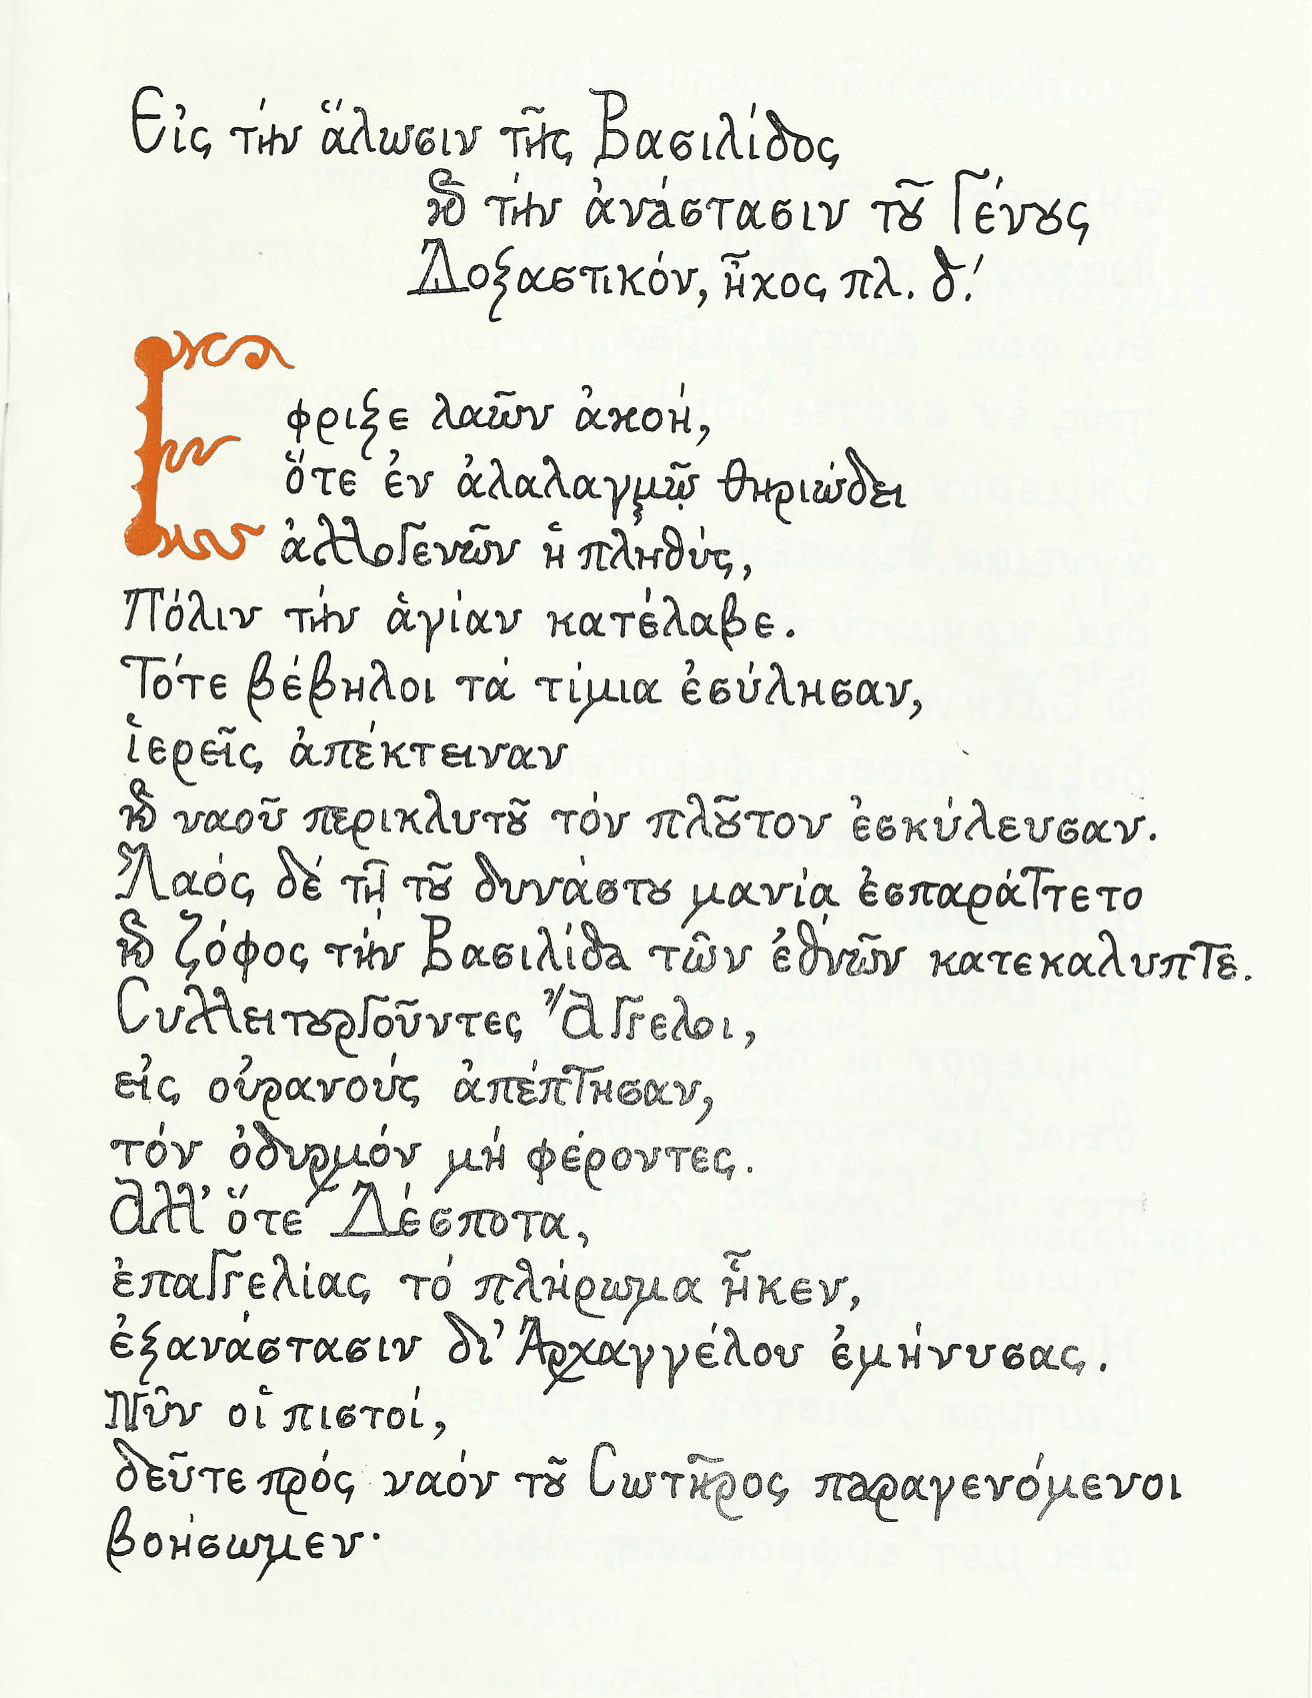 Εἰς τήν ἅλωσιν τῆς Βασιλίδος
ϗ τήν ἀνάστασιν τȣ͂ Γένȣς
Δοξαστικόν, ἦχος πλ. δ΄.
Ἔφριξε λαῶν ἀκοή,
ὅτε ἐν ἀλαλαγμῷ θηριώδει
ἀλλογενῶν ἡ πληθύς,
Πόλιν τήν ἁγίαν κατέλαβε.
Τότε βέβηλοι τά τίμια ἐσύλησαν,
ἱερεῖς ἀπέκτειναν
ϗ ναοῦ περικλυτȣ͂ τόν πλȣ͂τον ἐσκύλευσαν.
Λαός δέ τῇ τȣ͂ δυνάστȣ μανίᾳ ἐσπαράττετο
ϗ ζόφος τήν Βασιλίδα τῶν ἐθνῶν κατεκαλυπτε.
Συλλειτȣργοῦντες Ἄγγελοι,
εἰς οὐρανούς ἀπέπτησαν,
τόν ὀδυρμόν μή φέροντες.
Ἀλλ’ ὅτε Δέσποτα,
ἐπαγγελίας τό πλήρωμα ἧκεν,
ἐξανάστασιν δι’ Ἀρχαγγέλου ἐμήνυσας.
Νῦν οἱ πιστοί,
δεῦτε πρός ναόν τȣ͂ Σωτῆρος παραγενόμενοι
βοήσωμεν·